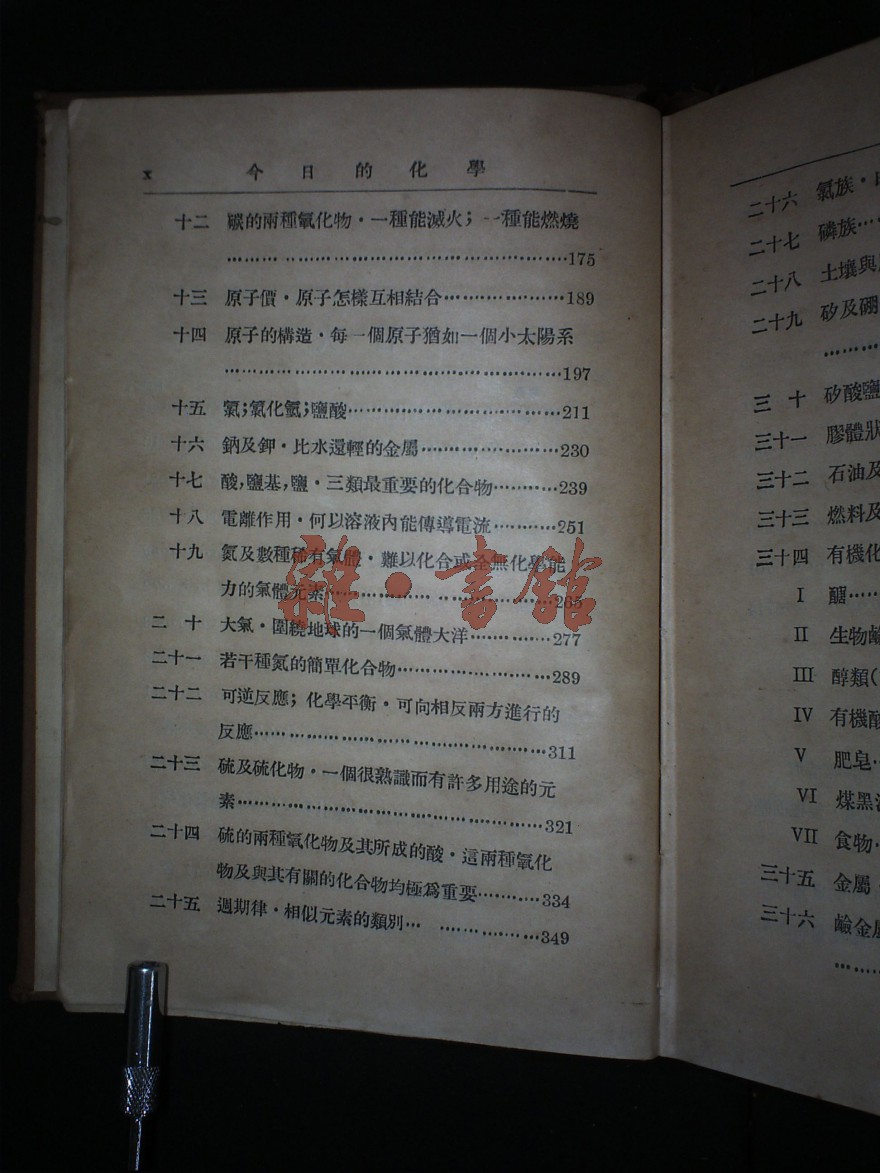 x 今日的化學
十二 碳的兩種氧化物·一種能滅火;一種能燃燒
……………………………………………175
十三 原子價·原子怎樣互相結合…………………189
十四 原子的構造·每一個原子猶如一個小太陽系
……………………………………………197
十五 氯;氯化氫;鹽酸…………………………211
十六 鈉及鉀·比水還輕的金屬…………………230
十七 酸,鹽基,鹽·三類最重要的化合物…………239
十八 電離作用·何以溶液內能傳導電流…………251
十九 氮及數種稀有氣體·難以化合或全無化學能
力的氣體元素……………………………265
二十 大氣·圍繞地球的一個氣體大洋……………277
二十一 若干種氮的簡單化合物……………………289
二十二 可逆反應;化學平衡·可向相反兩方進行的
反應………………………………………311
二十三 硫及硫化物·一個很熟識而有許多用途的元
素…………………………………………321
二十四 硫的兩種氧化物及其所成的酸·這兩種氧化
物及與其有關的化合物均極爲重要…………334
二十五 週期律·相似元素的類別… ………………349
雜·書館
二十六 氯族·
二十七 磷族……
二十八 土壤與
二十九 矽及硼
…………
三十 矽酸鹽
三十一 膠體狀
三十二 石油及
三十三 燃料及
三十四 有機化
I 醣……
II 生物鹼
III 醇類(
IV 有機酸
V 肥皂…
VI 煤黑
VII 食物·
三十五 金屬·
三十六 鹼金屬
…………